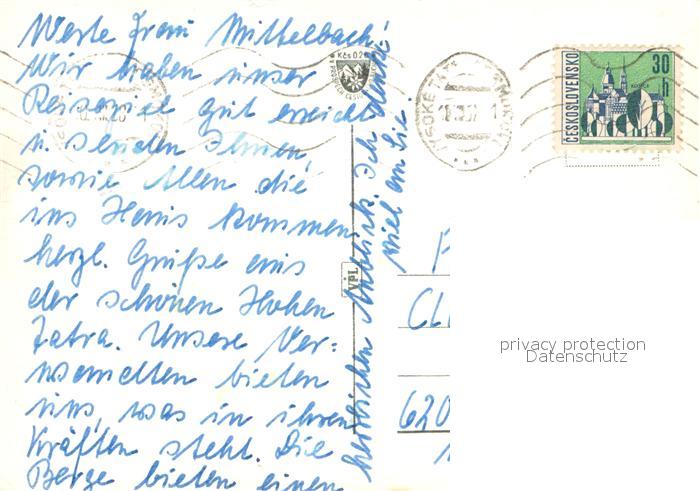 Werte Frau Mittelbach!
Wir haben unser
Reiseziel gut erreicht
u. senden Ihnen,
sowie Allen die
ins Haus kommen
herzl. Grüße aus
der schönen Hohen
Tatra. Unsere Ver=
wandten bieten
uns, was in ihren
Kräften steht. Die
Berge bieten einen
herrlichen Anblick. Ich denke
viel an Sie.
Kčs 0,20
VPL
ČESKOSLOVENSKO
30 h
CL
620
privacy protection
Datenschutz